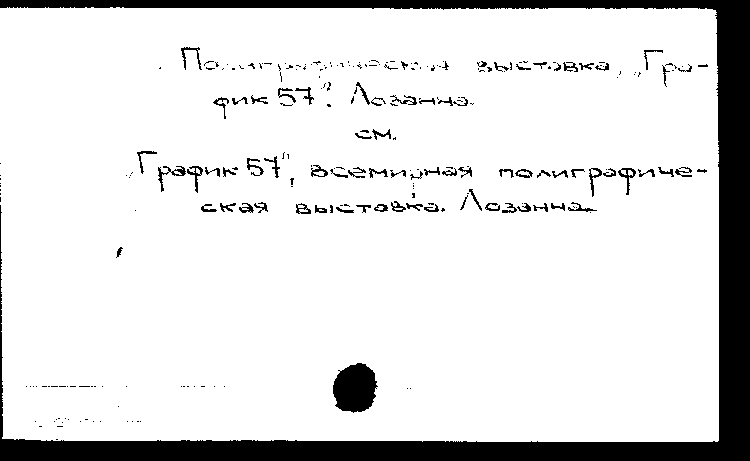 Полиграфическая выставка, „Гра-
фик 57". Лозанна.
см.
„График 57", всемирная полиграфиче-
ская выставка. Лозанна.